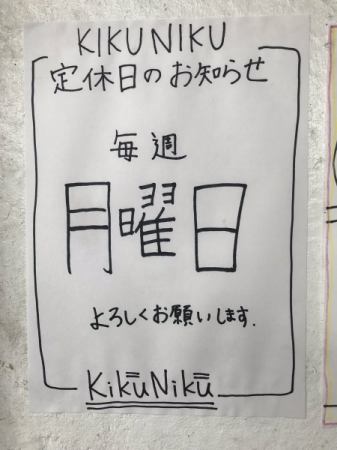 KIKU NIKU
定休日のお知らせ
毎週
月曜日
よろしくお願いします.
KiKuNiKu